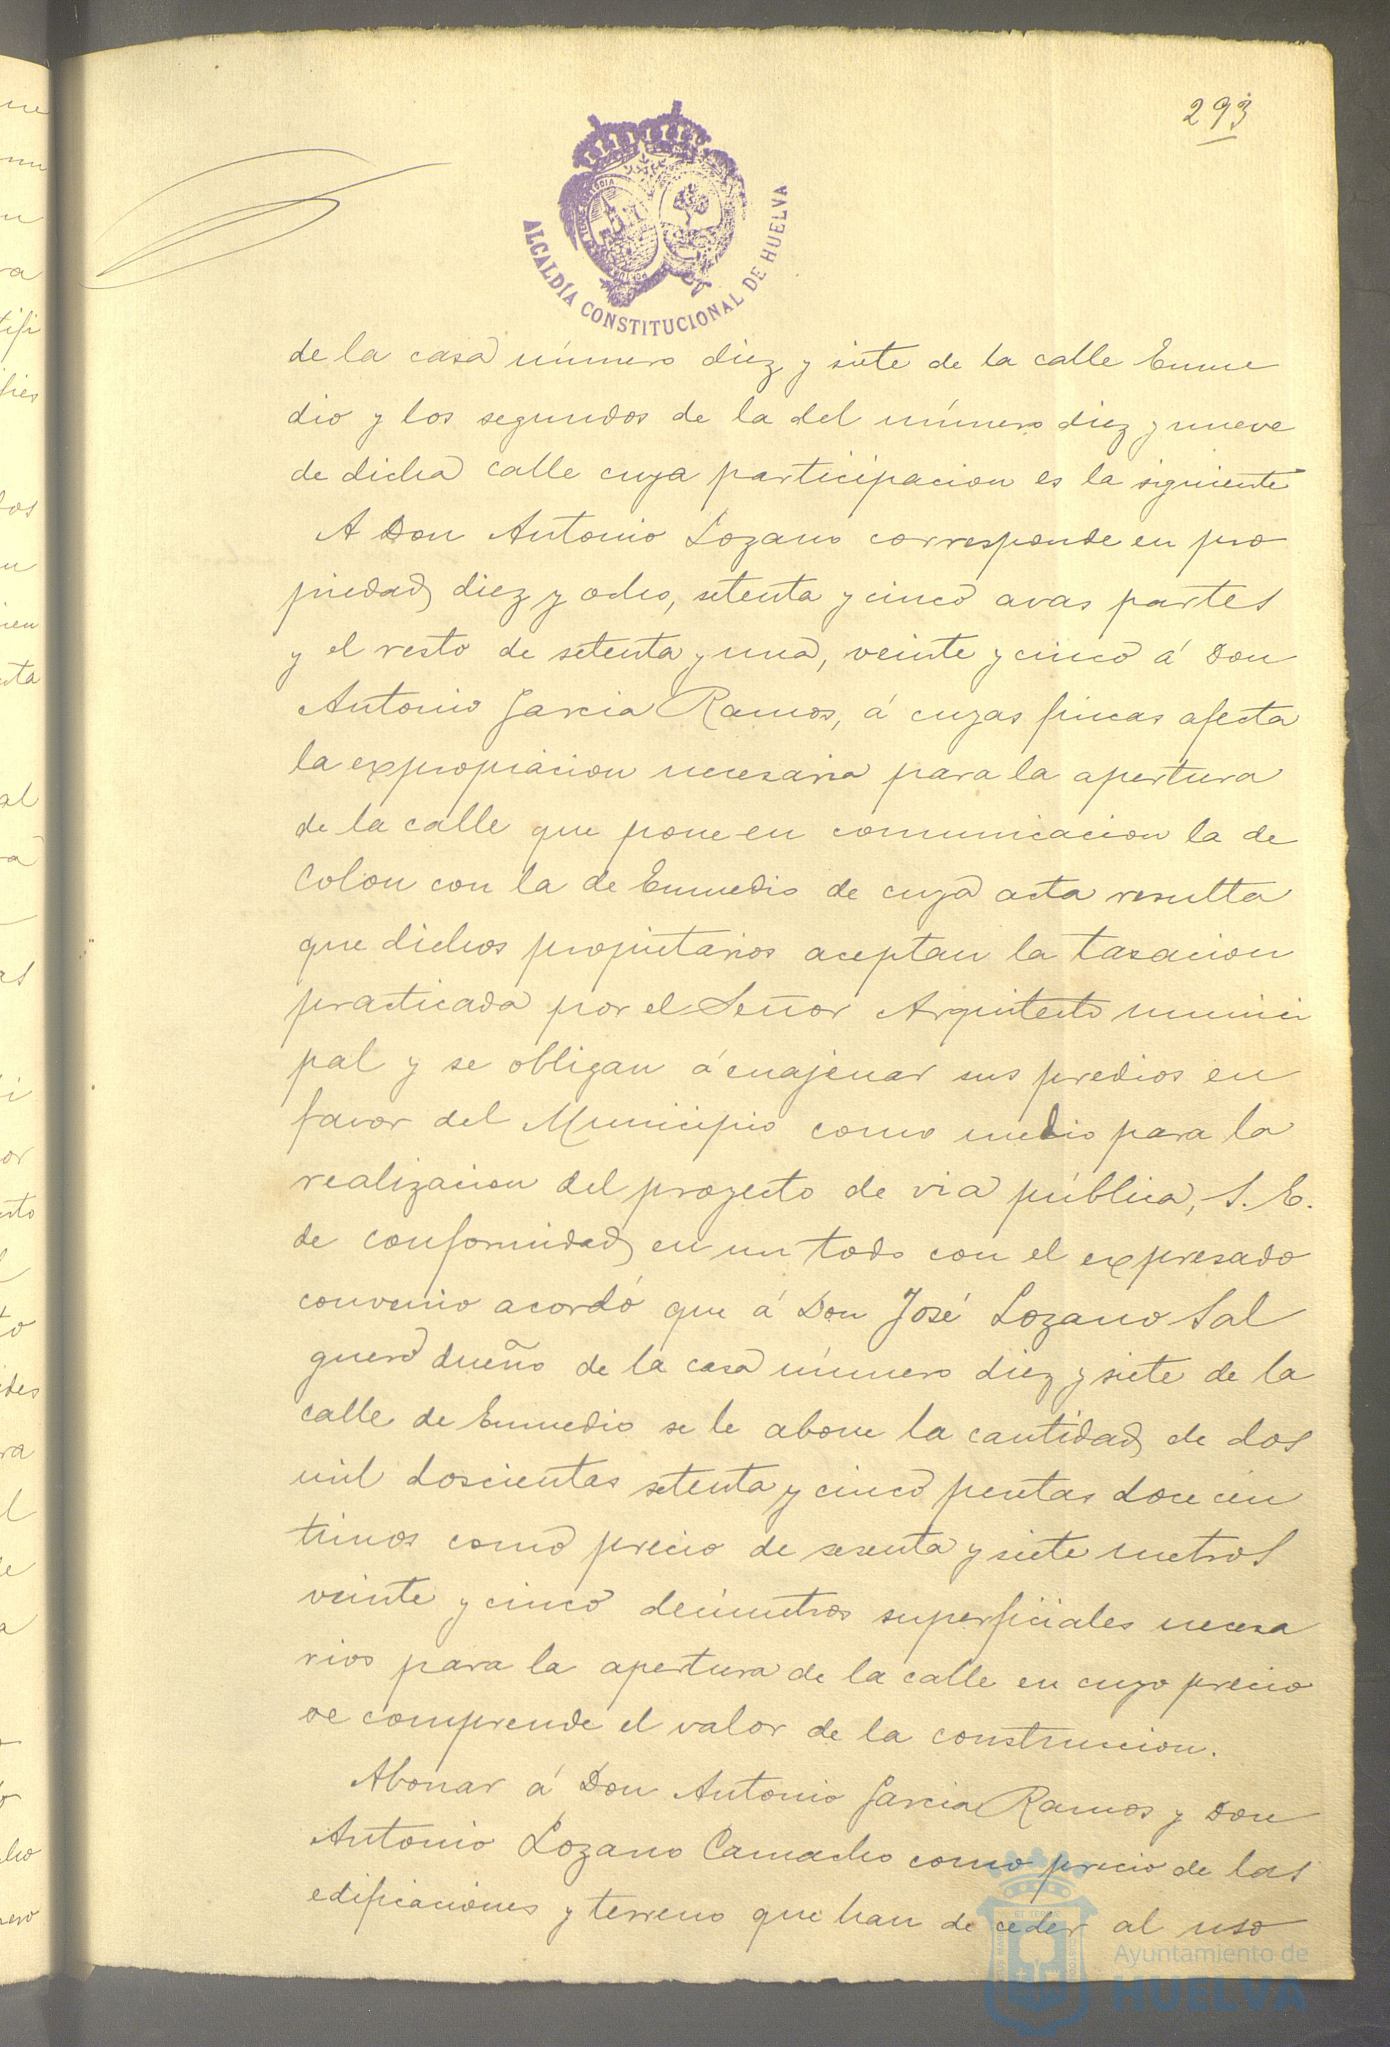 293
ALCALDÍA CONSTITUCIONAL DE HUELVA
de la casa número diez y siete de la calle Enme
dio y los segundos de la del número diez y nueve
de dicha calle cuya participacion es la siguiente
A Don Antonio Lozano corresponde en pro
piedad diez y ocho, setenta y cinco avas partes
y el resto de setenta y una, veinte y cinco á Don
Antonio Garcia Ramos, á cuyas fincas afecta
la expropiacion necesaria para la apertura
de la calle que pone en comunicacion la de
Colon con la de Enmedio de cuya acta resulta
que dichos propietarios aceptan la tasacion
practicada por el Señor Arquitecto munici
pal y se obligan á enajenar sus predios en
favor del Municipio como medio para la
realizacion del proyecto de via pública, S. E.
de conformidad en un todo con el expresado
convenio acordó que á Don José Lozano Sal
guero dueño de la casa número diez y siete de la
calle de Enmedio se le abone la cantidad de dos
mil doscientas setenta y cinco pesetas doce cen
timos como precio de sesenta y siete metros
veinte y cinco decimetros superficiales necesa
rios para la apertura de la calle en cuyo precio
se comprende el valor de la construccion.
Abonar á Don Antonio Garcia Ramos y Don
Antonio Lozano Camacho como precio de las
edificaciones y terreno que han de ceder al uso
Ayuntamiento de
HUELVA